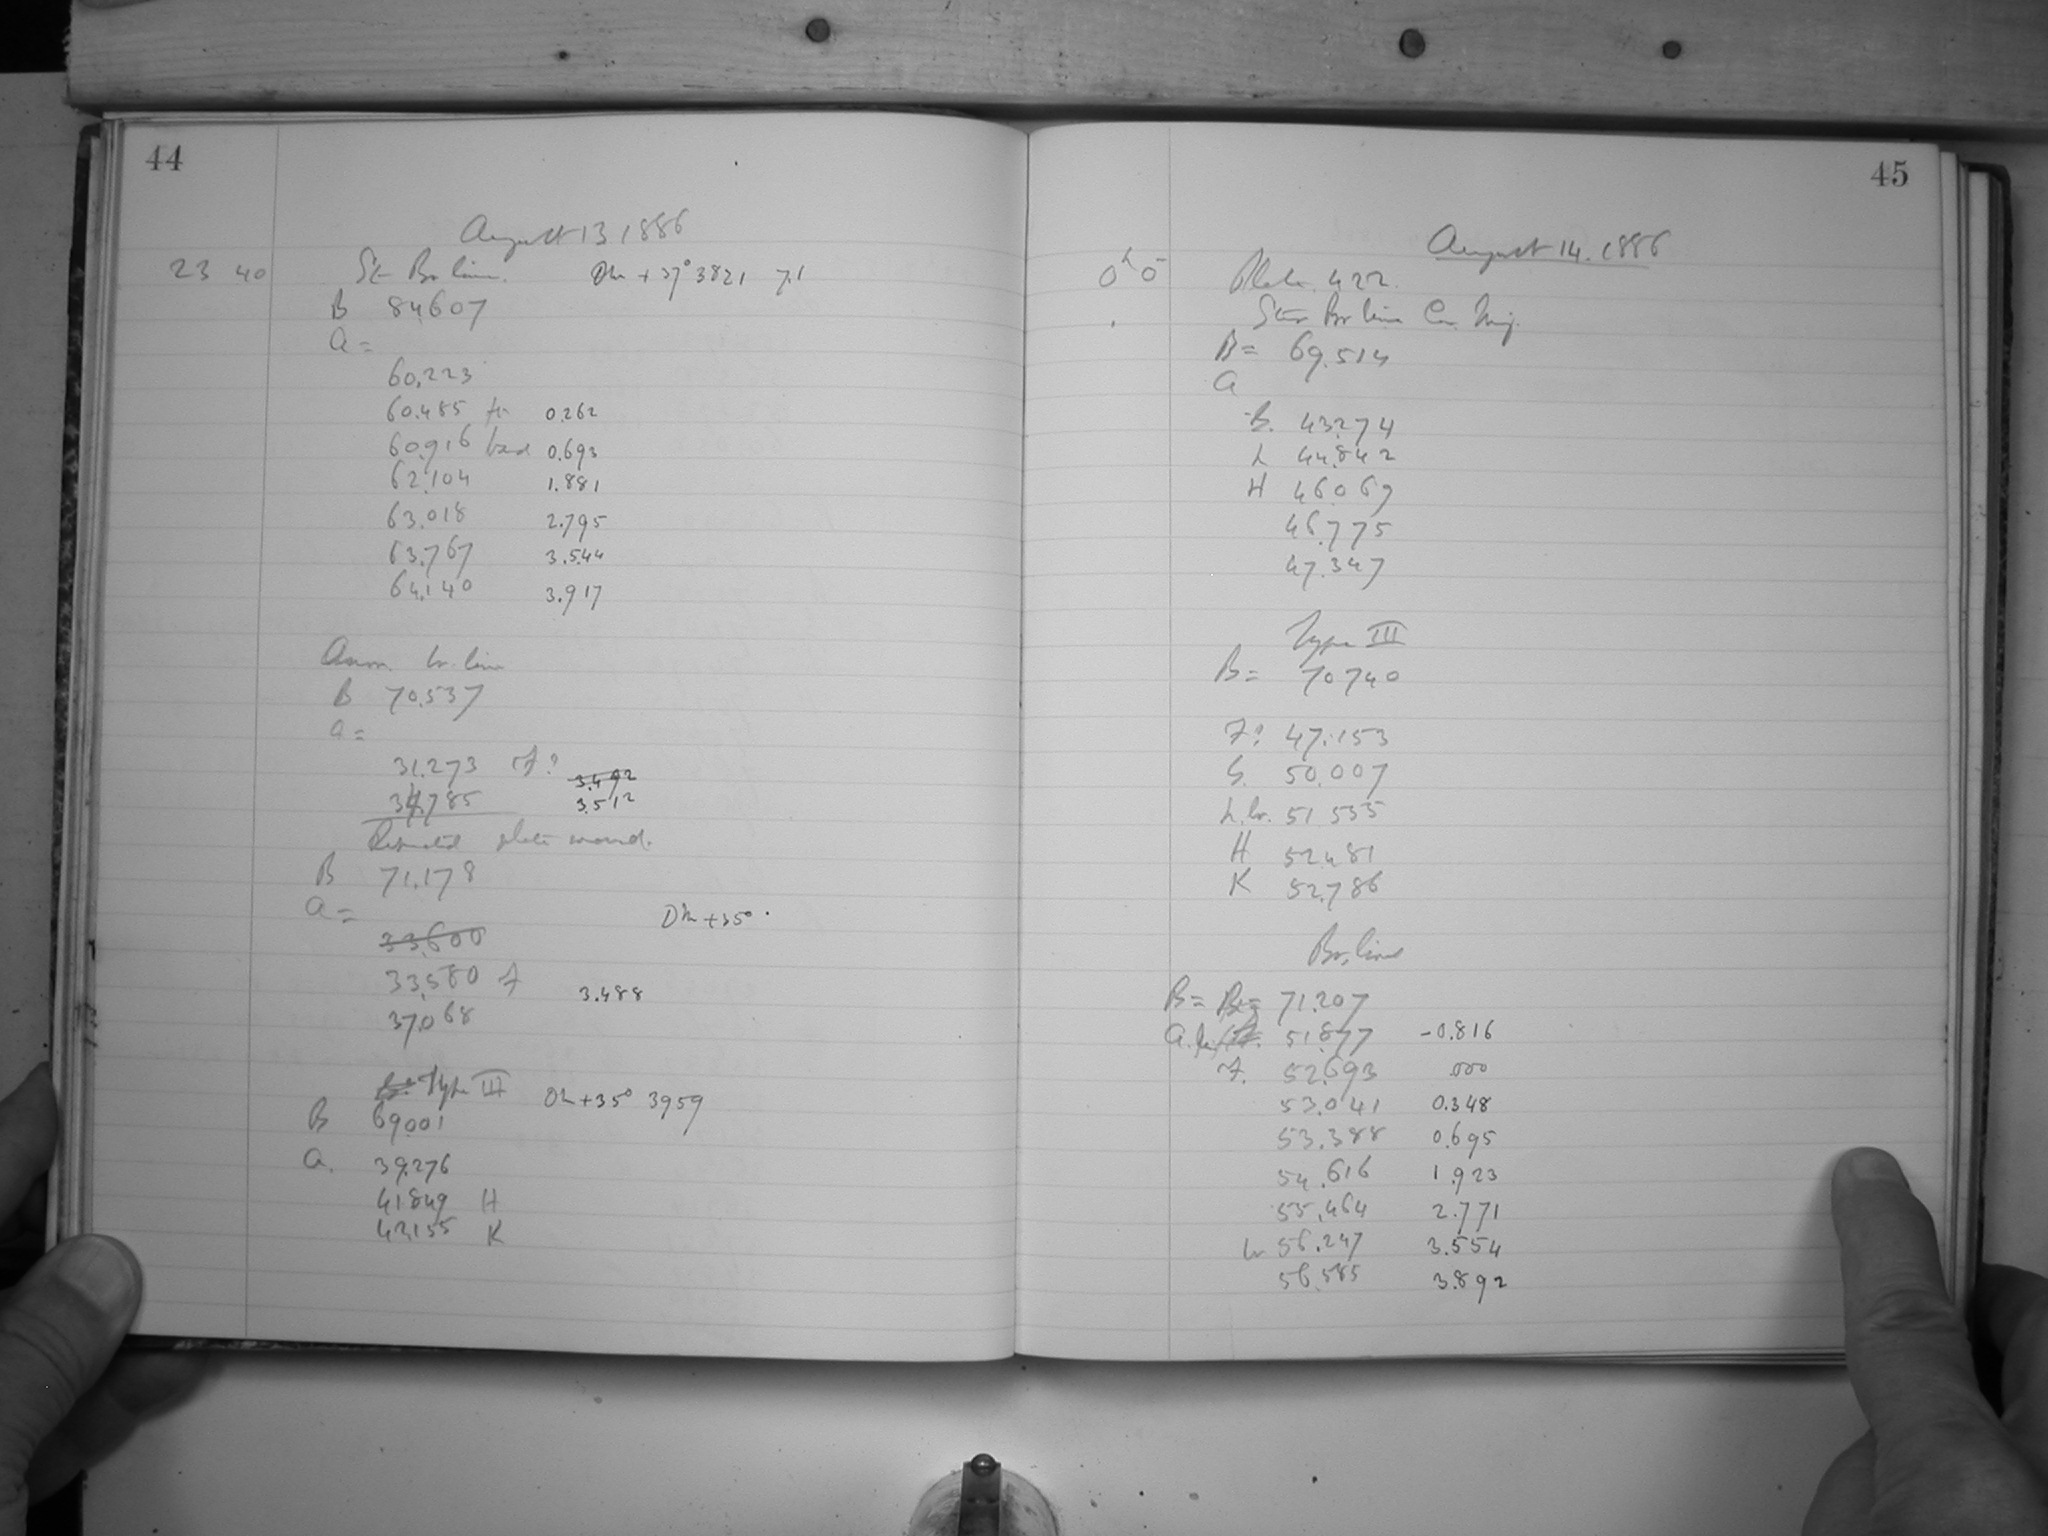 44
August 13 1886
23 40 St Br line. DM + 37° 3821 7.1
B 84.607
a =
60.223
60.485 0.262
60.916 band 0.693
62.104 1.881
63.018 2.795
63.767 3.544
64.140 3.917
br. line
B 70.537
a =
31.273 F? 3.492
34.785 3.512
Repeated plate moved.
B 71.178
a =
DM +35°
33.600
33.580 F
3.488
37.068
Type III DM +35° 3959
B 69.001
a. 39.276
41.849 H
42.155 K
45
August 14. 1886
0h 5 Plate 422.
Star Br line
B = 69.514
a
43.274
h 44.842
H 46.069
46.775
47.347
Type III
B = 70.740
F? 47.153
G. 50.007
h. br. 51.535
H 52.481
K 52.786
Br. line
B = B = 71.207
a. 51.877 -0.816
F. 52.693 .000
53.041 0.348
53.388 0.695
54.616 1.923
55.464 2.771
br 56.247 3.554
56.585 3.892